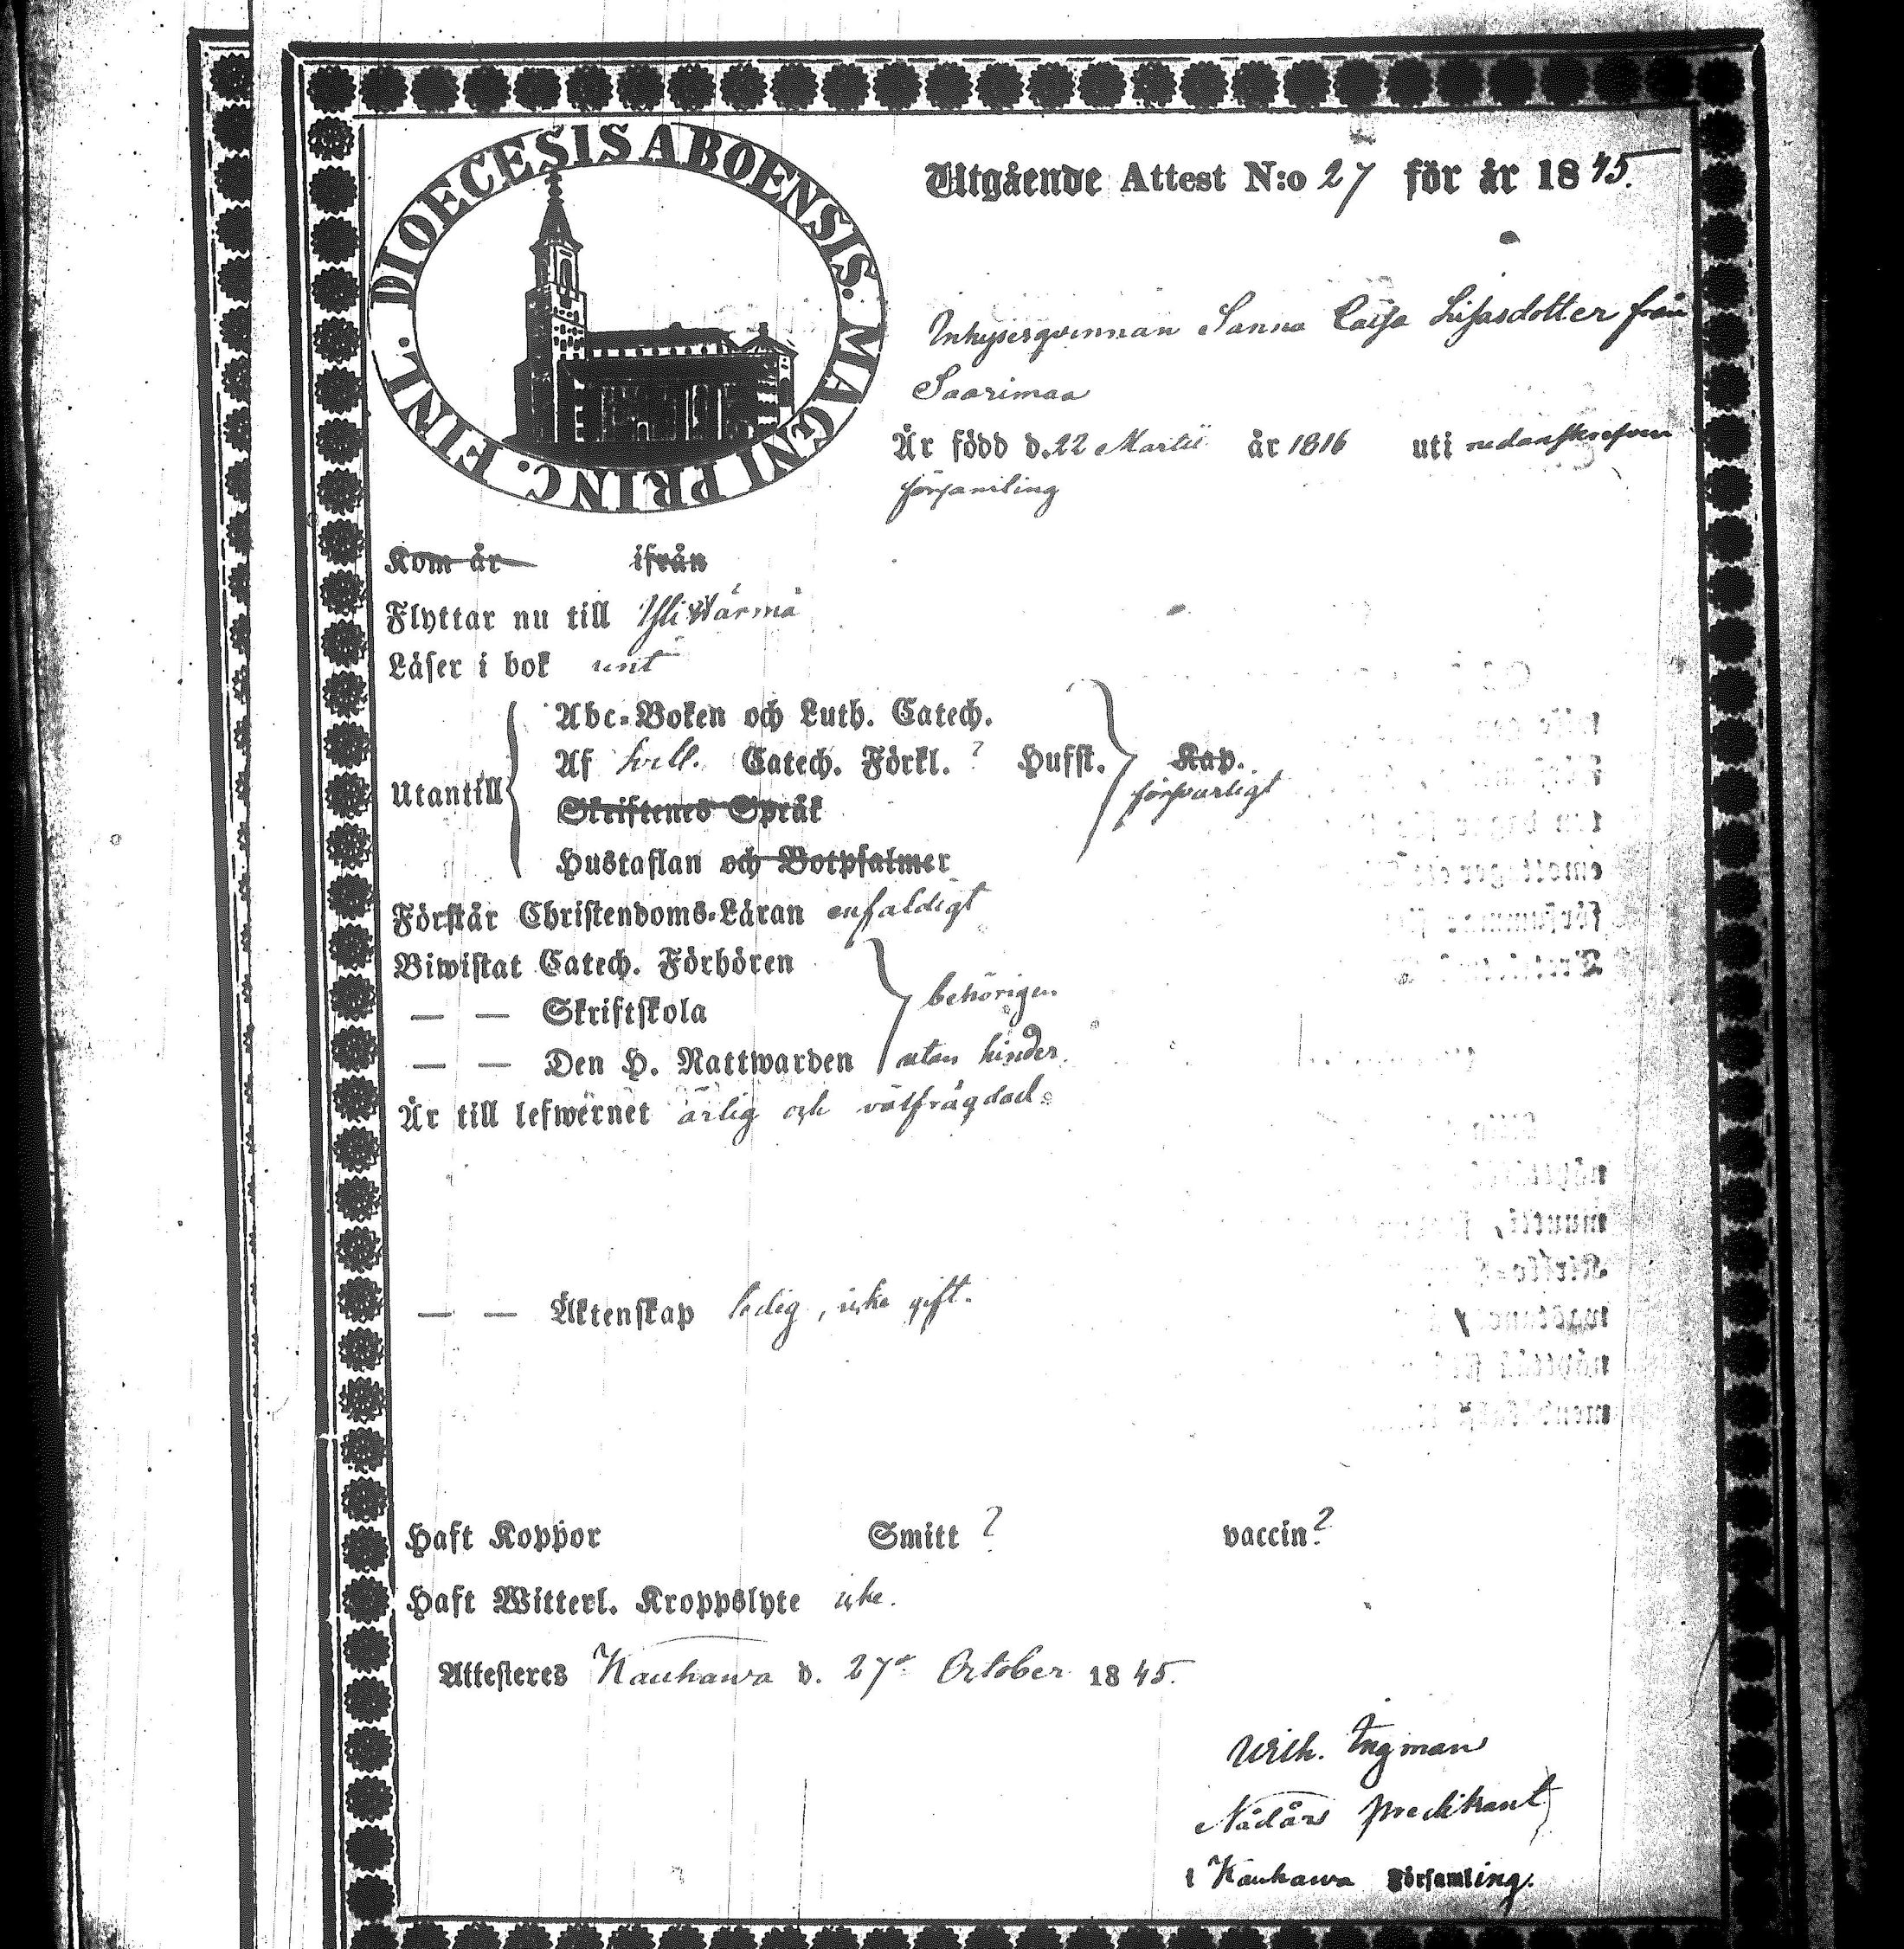 DIOECESIS ABOENSIS. MAGNI PRINC. FINL.
Utgående Attest N:o 27 för år 1845.
Inhysesqvinnan Sanna Caisa Lisasdotter från
Saarimaa
Är född d. 22 Martii år 1816 uti nedanskrefven
församling
Kom år ifrån
Flyttar nu till Yliwärmä
Läser i bok
Abc-Boken och Luth. Catech.
Af Catech. Förkl. ? Hufst. Kap.
Utantill försvarligt
Skriftenes Språk
Hustaflan och Botpsalmer
Förstår Christendoms-Läran enfaldigt
Biwistat Catech. Förhören
— — Skriftskola behörigen
— — Den H. Nattwarden utan hinder.
Är till lefwernet ärlig och välfrägdad.
— — Äktenskap ledig, icke gift.
Haft Koppor Smitt ? vaccin ?
Haft Witterl. Kroppslyte icke.
Attesteres Kauhawa d. 27de October 1845.
Wilh. Ingman
Nådårs predikant
i Kauhawa Församling.